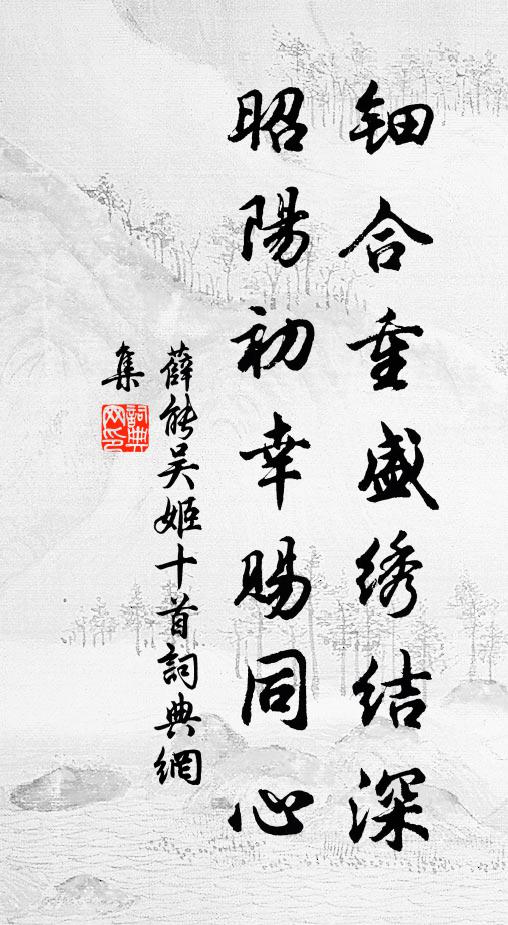 鈿合重盛绣结深
昭陽初幸賜同心
薛能吴姬十首詞典網
集
詞典网印